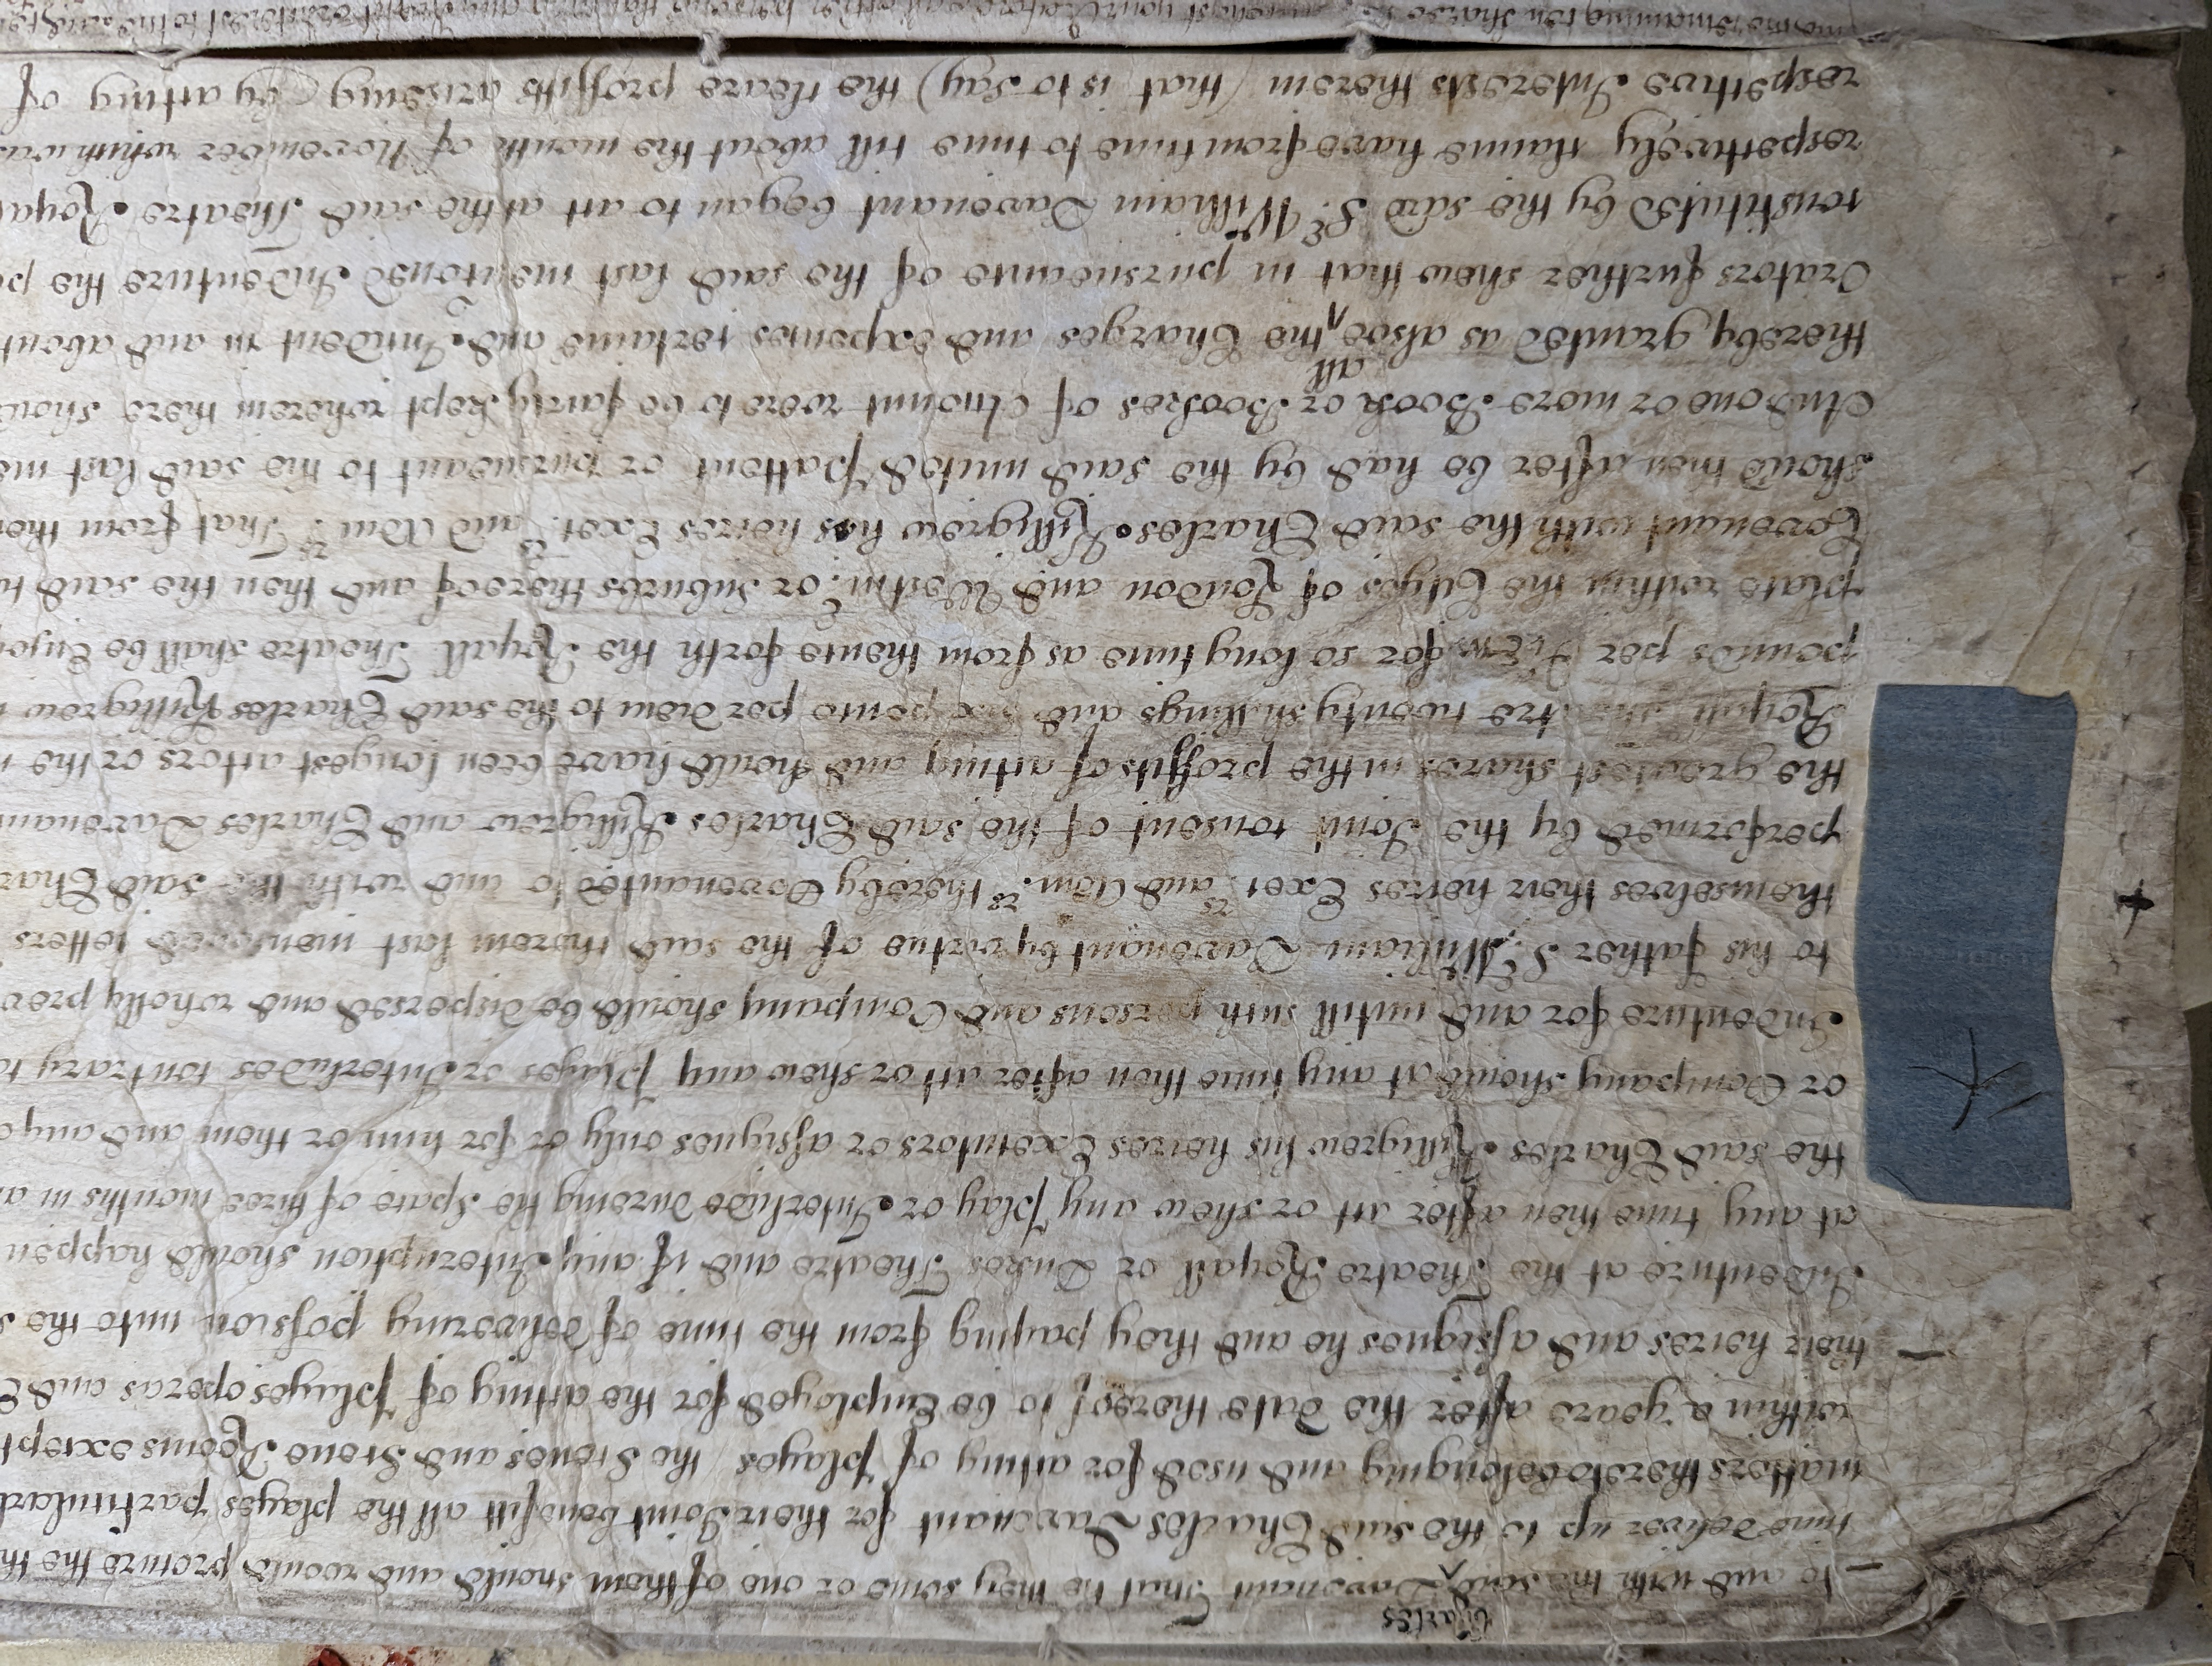 Charles
to and with the said ^ Davenant That he they some or one of them should and would procure the
time deliver up to the said Charles Davenant for their Joint benefitt all the playes particulard
matters thereto belonging and used for acting of playes the Scenes and Scene Rooms except
within a yeare after the date thereof to be Employed for the acting of playes operas and
their heires and assignes he and they paying from the time of delivering possion unto the
Indenture at the Theatre Royall or Dukes Theatre and if any Interuption should happen
at any time then after act or shew any play or Interlude dureing the Space of three months in
the said Charles Killigrew his heires Executors or assignes only or for him or them and any
or Company should at any time then after act or shew any Playes or Interludes contrary to
Indenture for and untill such persons and Company should be dispersed and wholly
to his father Sr. William Davenant by vertue of the said therein last mencioned letters
themselves their heires Exet.rs and Adm.rs thereby Covenanted to and with the said
performed by the Joint consent of the said Charles Killigrew and Charles
the greatest shares in the proffitts of acting and should have been longest actors or the
Royall Theatre twenty shillings and six pence per diem to the said Charles Killigrew
pounds per for so long time as from thence forth the Royall Theatre shall be
place within the Cityes of London and Westm.r or suburbes thereof and then the said
Covenant with the said Charles Killigrew his heires Exet.rs and Adm.rs That from
should then after be had by the said united Pattent or pursueant to the said last
And one or more Book or Bookes of Account were to be fairly kept wherein there
all
thereby granted as alsoe ^ the Charges and expences certaine and Incident in and about
Orators further shew that in pursueance of the said last mentoned Indenture the
constituted by the said Sr. William Davenant began to act at the said Theatre
respectively claime have from time to time till about the month of November which
respective Interests therein (that is to say) the cleare proffitts ariseing by acting of
remaining ten shares